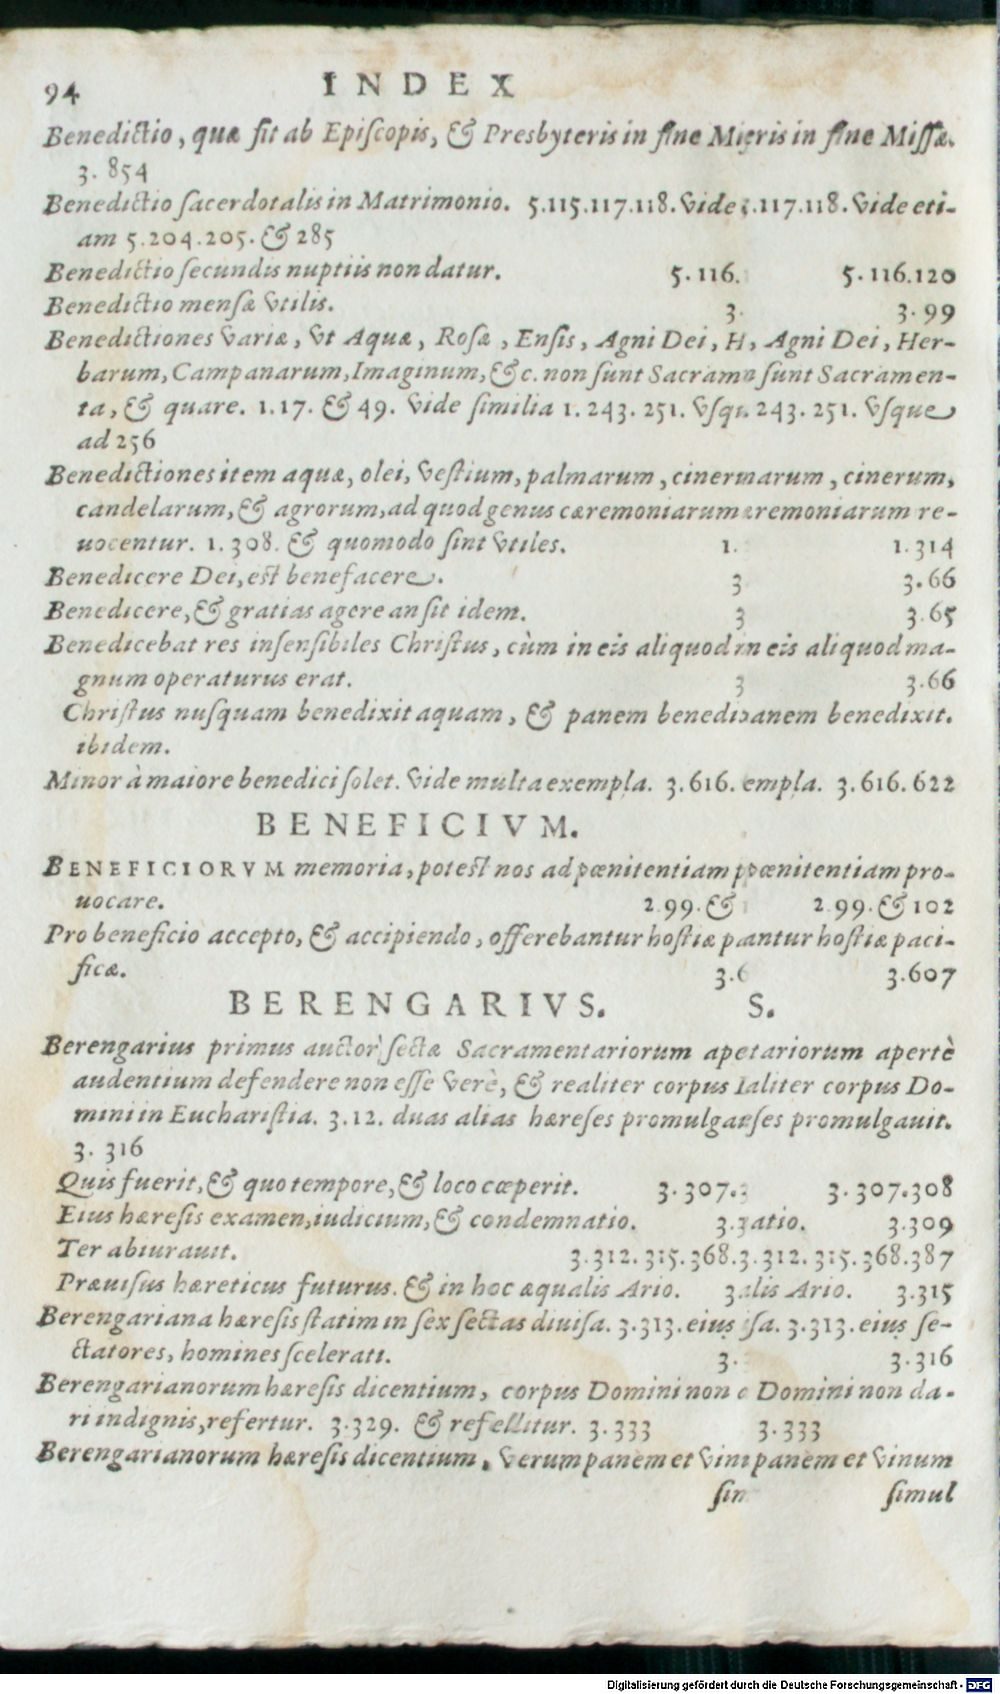 94 INDEX
Benedictio, quæ fit ab Episcopis, & Presbyteris in fine Mieris in fine Missæ.
3. 854
Benedictio sacerdotalis in Matrimonio. 5.115.117.118. Vide 5.117.118. Vide eti-
am 5.204.205. & 285
Benedictio secundis nuptiis non datur. 5.116. 5.116.120
Benedictio mensæ vtilis. 3. 3.99
Benedictiones variæ, vt Aquæ, Rosæ, Ensis, Agni Dei, H, Agni Dei, Her-
barum, Campanarum, Imaginum, &c. non sunt Sacramn sunt Sacramen-
ta, & quare. 1.17. & 49. Vide similia 1.243.251. Vsqu. 243.251. Vsque
ad 256
Benedictiones item aquæ, olei, vestium, palmarum, cinermarum, cinerum,
candelarum, & agrorum, ad quod genus cæremoniarum æremoniarum re-
uocentur. 1.308. & quomodo sint vtiles. 1. 1.314
Benedicere Dei, est benefacere. 3 3.66
Benedicere, & gratias agere an sit idem. 3 3.65
Benedicebat res insensibiles Christus, cùm in eis aliquod in eis aliquod ma-
gnum operaturus erat. 3 3.66
Christus nusquam benedixit aquam, & panem benedi anem benedixit.
ibidem.
Minor à maiore benedici solet. Vide multa exempla. 3.616. empla. 3.616.622
BENEFICIVM.
BENEFICIORVM memoria, potest nos ad pœnitentiam p pœnitentiam pro-
uocare. 2.99. & 2.99. & 102
Pro beneficio accepto, & accipiendo, offerebantur hostiæ p antur hostiæ paci-
ficæ. 3.6 3.607
BERENGARIVS. S.
Berengarius primus auctor sectæ Sacramentariorum ape tariorum apertè
audentium defendere non esse verè, & realiter corpus D aliter corpus Do-
mini in Eucharistia. 3.12. duas alias hæreses promulga eses promulgauit.
3. 316
Quis fuerit, & quo tempore, & loco cœperit. 3.307.3 3.307.308
Eius hæresis examen, iudicium, & condemnatio. 3.3 atio. 3.309
Ter abiurauit. 3.312.315.368.3 3.312.315.368.387
Præuisus hæreticus futurus. & in hoc æqualis Ario. 3 alis Ario. 3.315
Berengariana hæresis statim in sex sectas diuisa. 3.313. eius isa. 3.313. eius se-
ctatores, homines scelerati. 3. 3.316
Berengarianorum hæresis dicentium, corpus Domini non Domini non da-
ri indignis, refertur. 3.329. & refellitur. 3.333 3.333
Berengarianorum hæresis dicentium, verum panem et vin panem et vinum
sim simul
Digitalisierung gefördert durch die Deutsche Forschungsgemeinschaft - DFG